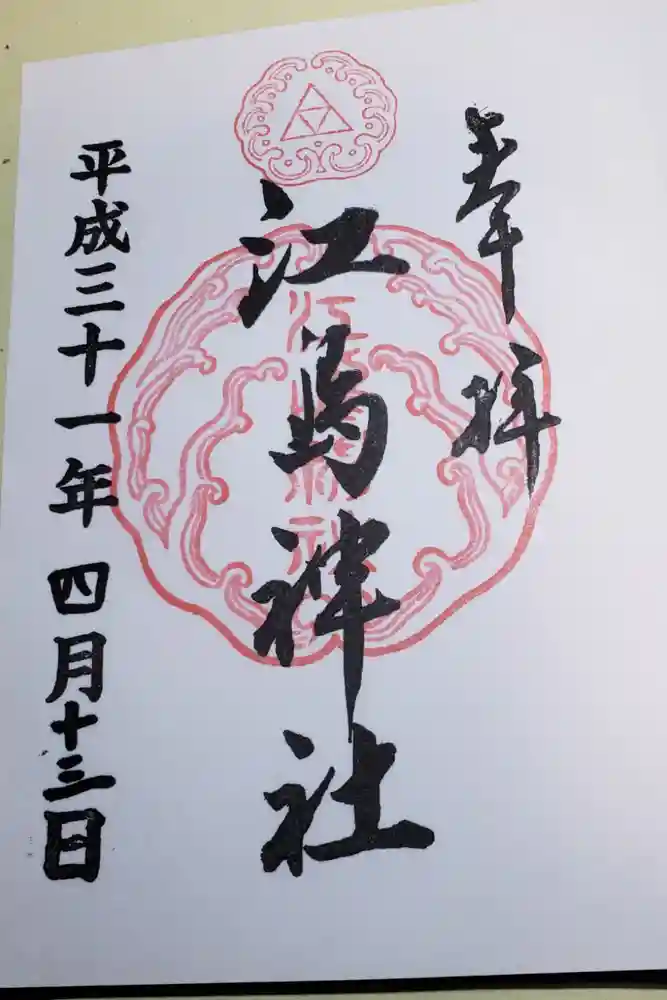 奉拝
江島神社
平成三十一年四月十三日